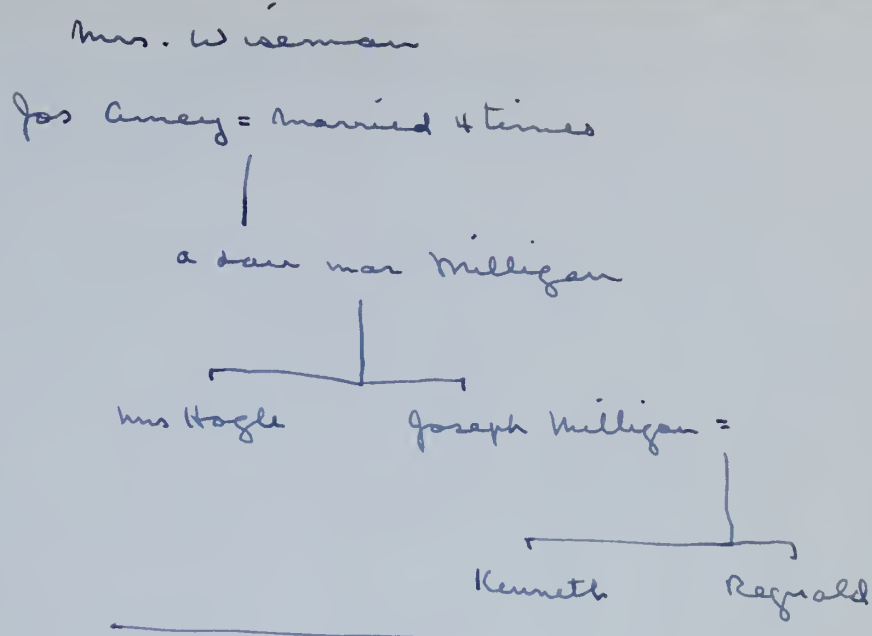 Mrs. Wiseman
Jos Amey = married 4 times
a dau mar Milligan
Mrs Hogle Joseph Milligan =
Kenneth Reginald